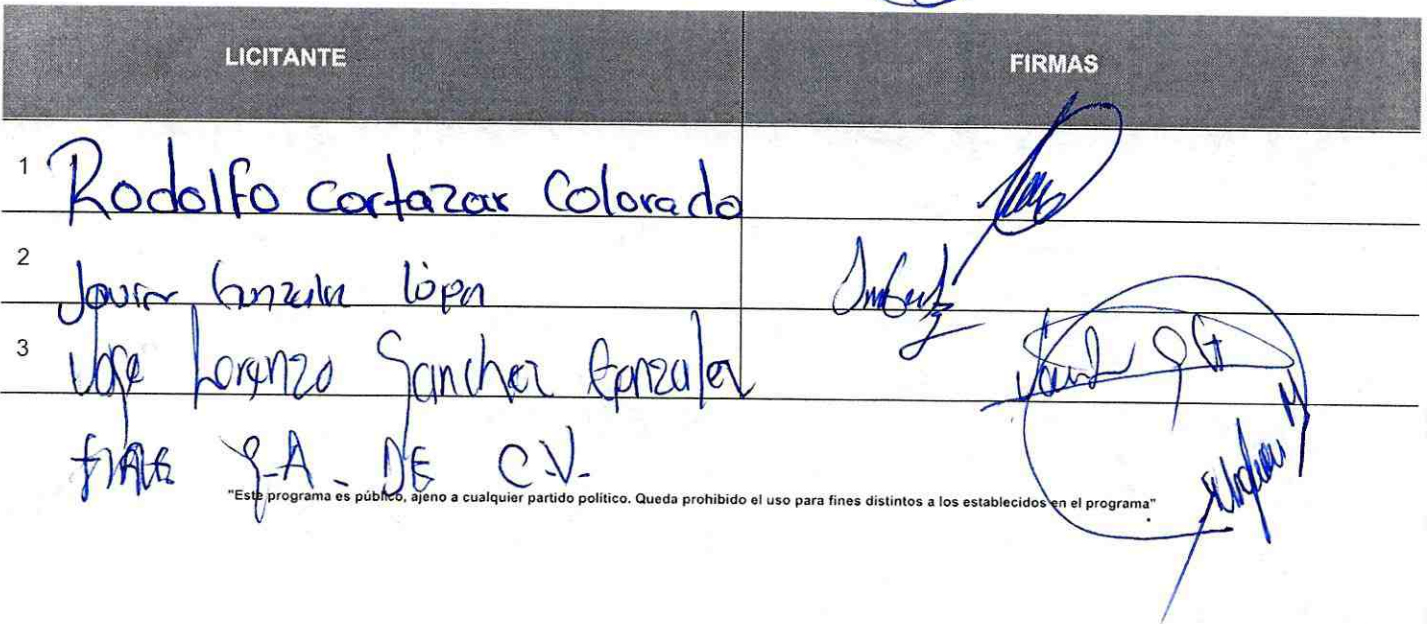 LICITANTE FIRMAS
1 Rodolfo cortazar Colorado
2 Javier Gonzalez López
3 Jose Lorenzo Sanchez Gonzalez
S.A. DE C.V.
"Este programa es público, ajeno a cualquier partido político. Queda prohibido el uso para fines distintos a los establecidos en el programa"